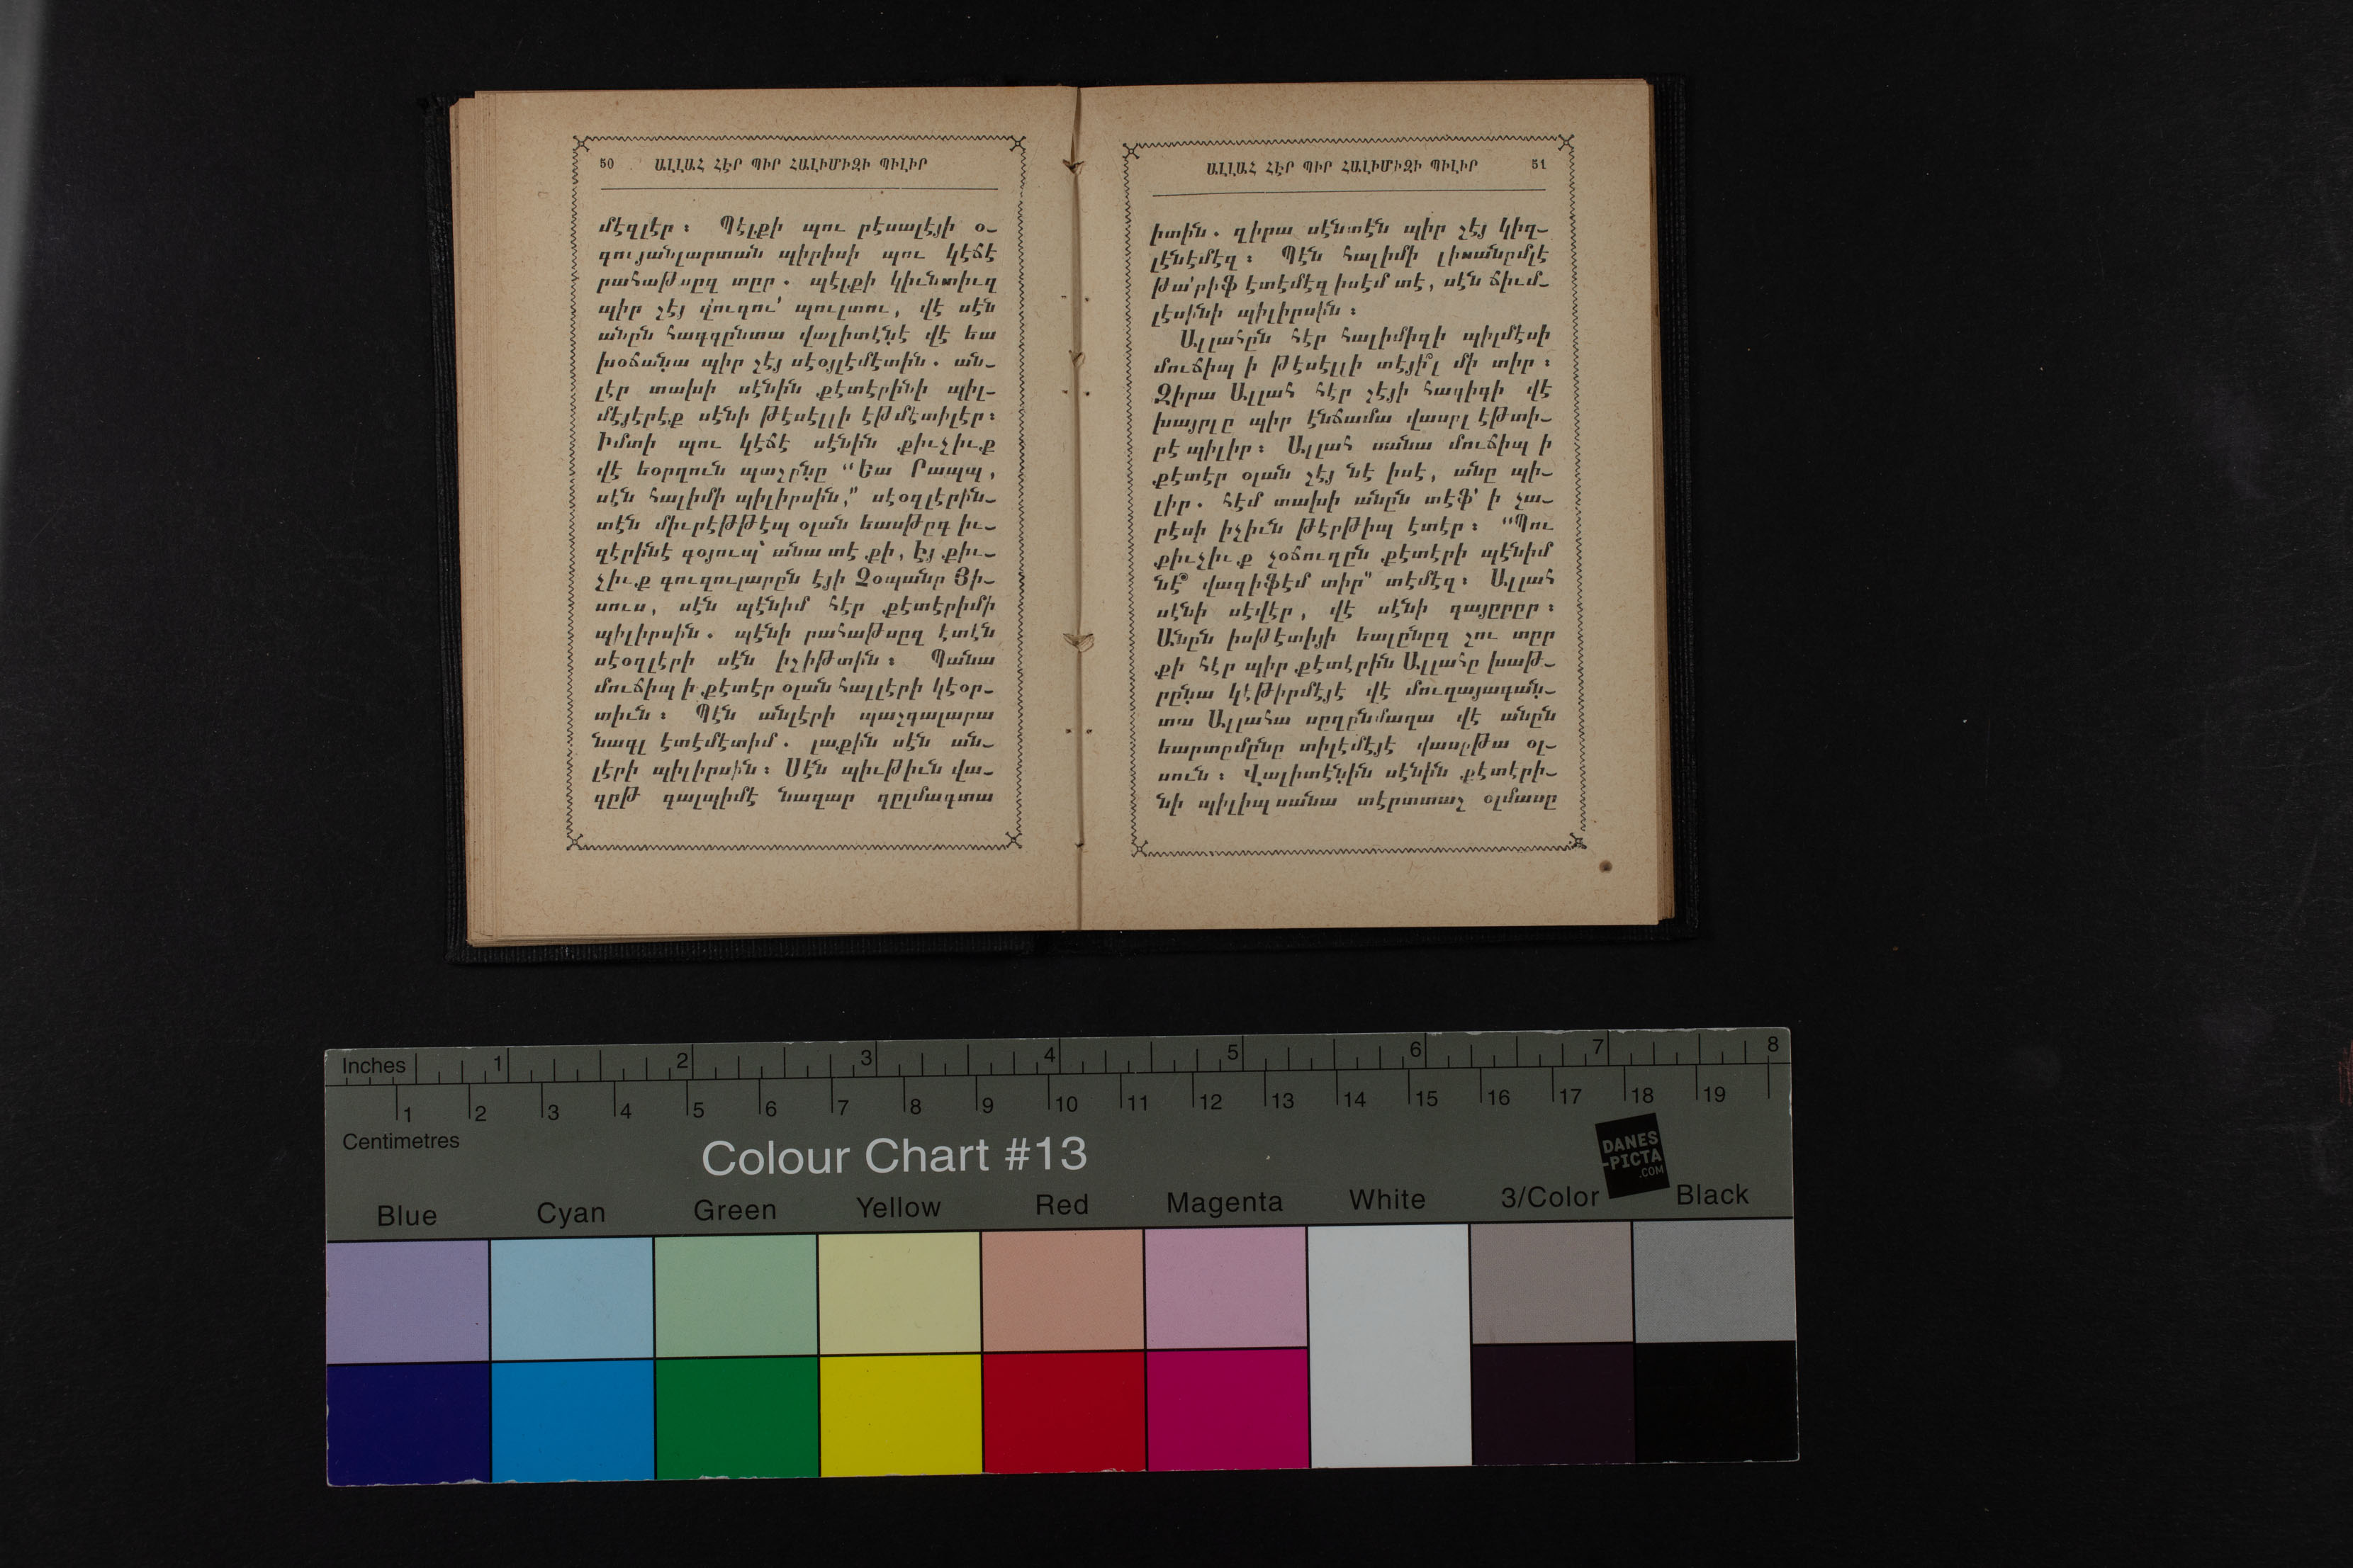 50 ԱԼԼԱՀ ՀԷՐ ՊԻՐ ՀԱԼԻՄԻԶԻ ՊԻԼԻՐ
մէզլէր։ Պէլքի պու րէսալէյի օ֊
գույանլարտան պիրիսի պու կէճէ
րահաթսըզ տըր. պէլքի կիւնտիւզ
պիր չէյ վուգու՛ պուլտու, վէ սէն
անըն հագգընտա վալիտէնէ վէ եա
խօճանա պիր չէյ սէօյլէմէտին. ան֊
լէր տախի սէնին քէտէրինի պիլ֊
մէյէրէք սէնի թէսէլլի էթմէտիլէր։
Իմտի պու կէճէ սէնին քիւչիւք
վէ եօրղուն պաչընը “Եա Րապպ,
սէն հալիմի պիլիրսին,” սէօզլէրին֊
տէն միւրէթթէպ օլան եասթըգ իւ֊
զէրինէ գօյուպ՝ անա տէ քի, Էյ քիւ֊
չիւք գուզուլարըն էյի Չօպանը Յի֊
սուս, սէն պէնիմ հէր քէտէրիմի
պիլիրսին. պէնի րահաթսըզ էտէն
սէօզլէրի սէն իչիթտին։ Պանա
մուճիպ ի քէտէր օլան հալլէրի կէօր֊
տիւն։ Պէն անլէրի պաչգալարա
նագլ էտէմէտիմ. լաքին սէն ան֊
լէրի պիլիրսին։ Սէն պիւթիւն վա֊
գըթ գալպիմէ նազար գըլմագտա
ԱԼԼԱՀ ՀԷՐ ՊԻՐ ՀԱԼԻՄԻԶԻ ՊԻԼԻՐ 51
իտին. զիրա սէնտէն պիր չէյ կիզ֊
լէնէմէզ։ Պէն հալիմի լիսանըմլէ
թա՛րիֆ էտէմէզ իսէմ տէ, սէն ճիւմ֊
լէսինի պիլիրսին։
Ալլահըն հէր հալիմիզի պիլմէսի
մուճիպ ի թէսէլլի տէյի՞լ մի տիր։
Զիրա Ալլահ հէր չէյի հագիգի վէ
խայրլը պիր էնճամա վասըլ էթտի֊
րէ պիլիր։ Ալլահ սանա մուճիպ ի
քէտէր օլան չէյ նէ իսէ, անը պի֊
լիր. հէմ տախի անըն տէֆ՛ ի չա֊
րէսի իչիւն թէրթիպ էտէր։ “Պու
քիւչիւք չօճուղըն քէտէրի պէնիմ
նէ՞ վազիֆէմ տիր” տէմէզ։ Ալլահ
սէնի սէվէր, վէ սէնի գայըրըր։
Անըն իսթէտիյի եալընըզ չու տըր
քի հէր պիր քէտէրին Ալլահը խաթ֊
րընա կէթիրմէյէ վէ մուզայագան֊
տա Ալլահա սըղընմաղա վէ անըն
եարտըմընը տիլէմէյէ վասըթա օլ֊
սուն։ Վալիտէնին սէնին քէտէրի֊
նի պիլիպ սանա տէրտտաչ օլմասը
Inches 1 2 3 4 5 6 7 8
1 2 3 4 5 6 7 8 9 10 11 12 13 14 15 16 17 18 19
Centimetres
Colour Chart #13
DANES
-PICTA
.COM
Blue Cyan Green Yellow Red Magenta White 3/Color Black